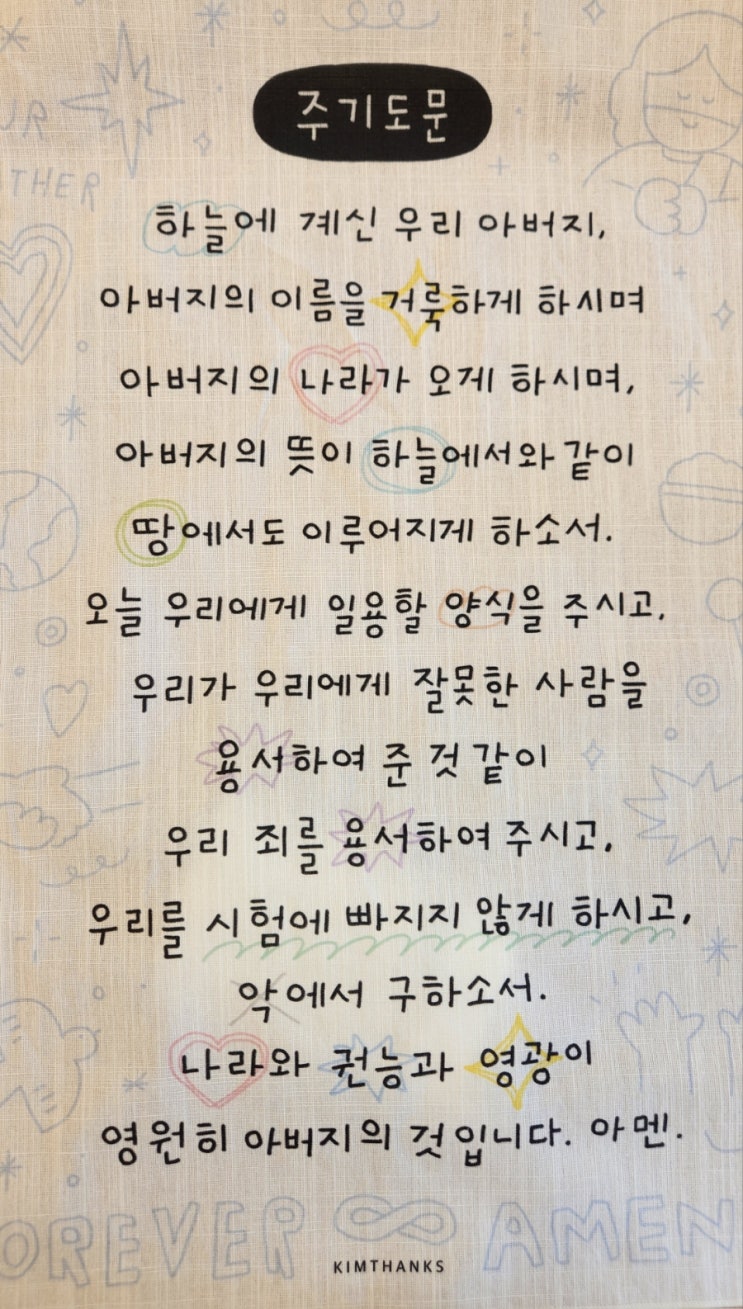 주기도문
하늘에 계신 우리 아버지,
아버지의 이름을 거룩하게 하시며
아버지의 나라가 오게 하시며,
아버지의 뜻이 하늘에서와 같이
땅에서도 이루어지게 하소서.
오늘 우리에게 일용할 양식을 주시고,
우리가 우리에게 잘못한 사람을
용서하여 준 것 같이
우리 죄를 용서하여 주시고,
우리를 시험에 빠지지 않게 하시고,
악에서 구하소서.
나라와 권능과 영광이
영원히 아버지의 것입니다. 아멘.
OREVER AMEN
KIMTHANKS